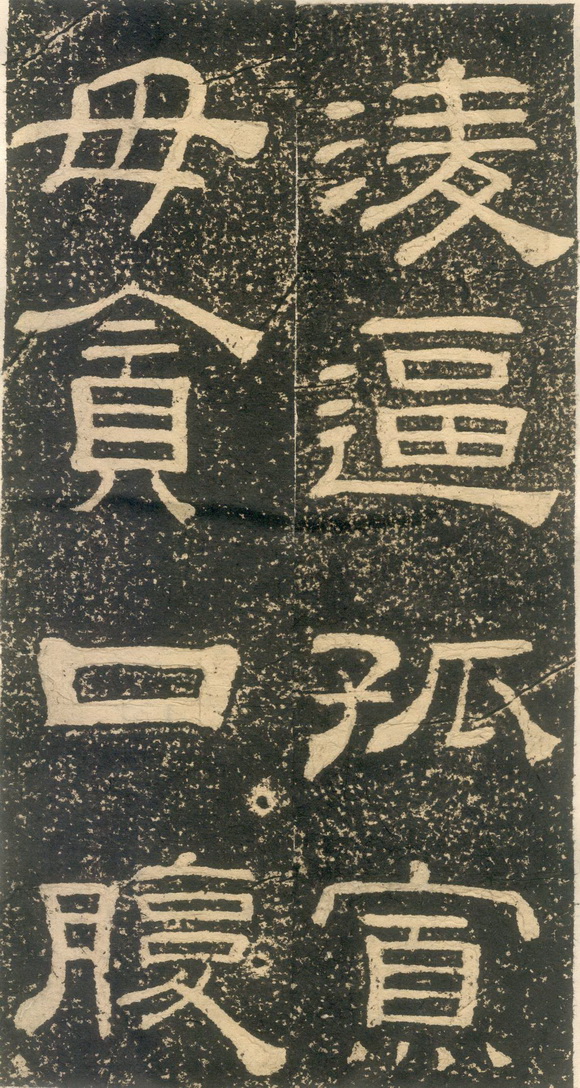 淩逼孤寡
毋貪口腹